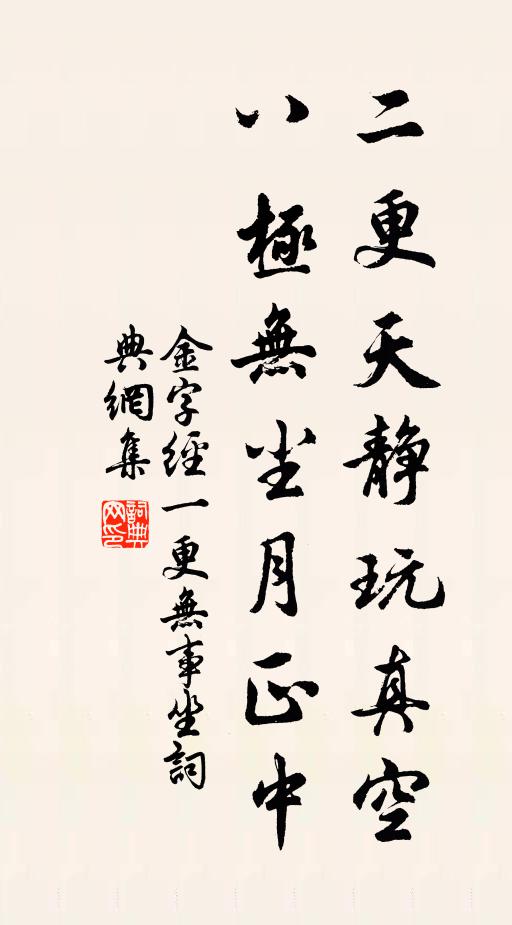 二更天静玩真空
八極無尘月正中
金字經一更無事坐詞
典網集
詞典网印